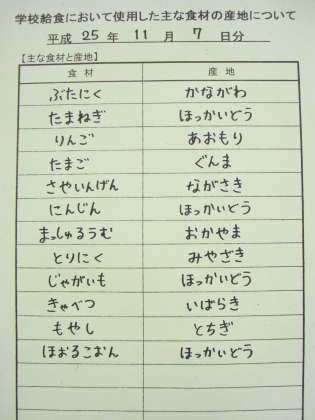 学校給食において使用した主な食材の産地について
平成 25 年 11 月 7 日分
【主な食材と産地】
食材 産地
ぶたにく かながわ
たまねぎ ほっかいどう
りんご あおもり
たまご ぐんま
さやいんげん ながさき
にんじん ほっかいどう
まっしゅるうむ おかやま
とりにく みやざき
じゃがいも ほっかいどう
きゃべつ いばらき
もやし とちぎ
ほおるこおん ほっかいどう